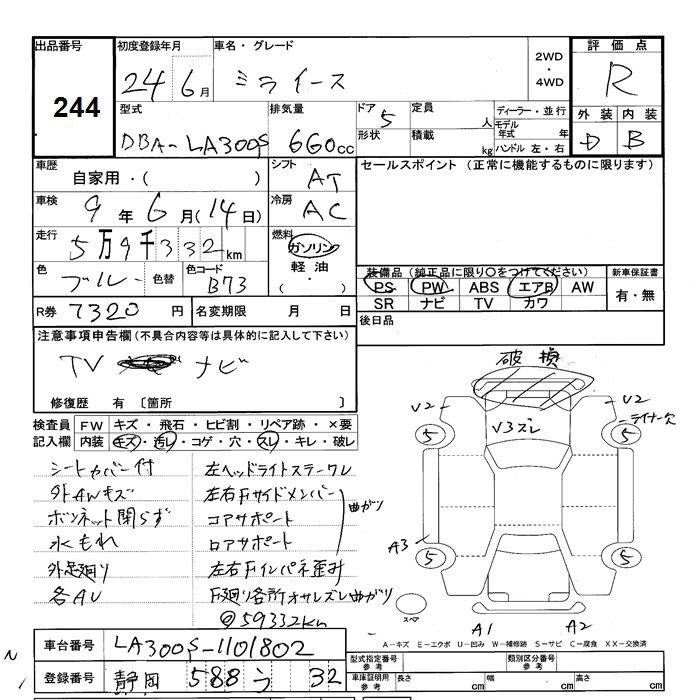 出品番号 初度登録年月 車名・グレード 2WD ・ 4WD 評価点
244 24 6月 ミライース R
型式 排気量 ドア 5 定員 人 ディーラー・並行 外装 内装
DBA-LA300S 660cc 形状 積載 kg モデル年式 年 ハンドル 左・右 D B
車歴 自家用・( ) シフト AT セールスポイント (正常に機能するものに限ります)
車検 9年6月(14日) 冷房 AC
走行 5万9千332km 燃料 ガソリン
色 ブルー 色替 色コード B73 軽油 ・( )
装備品(純正品に限り○をつけてください) 新車保証書
PS PW ABS エアB AW 有・無
SR ナビ TV カワ
R券 7320円 名変期限 月 日 後日品
注意事項申告欄(不具合内容等は具体的に記入して下さい)
TV ナビ
修復歴 有 〔箇所 〕
検査員記入欄 FW キズ・飛石・ヒビ割・リペア跡・×要
内装 キズ・汚レ・コゲ・穴・スレ・キレ・破レ
シートカバー付 左ヘッドライトステーワレ
外AWキズ 左右Fサイドメンバー
ボンネット閉らず コアサポート 曲がり
水もれ ロアサポート
外足廻り 左右Fインパネ歪み
各AU F廻り各所オサレズレ曲がり
@59332km
破損
V2 V3ズレ V2
ライナー欠
5 5
A3
5 5
スペア
A1 A2
A-キズ E-エクボ U-凹み W-補修跡 S-サビ C-腐食 XX-交換済
車台番号 LA300S-1101802
型式指定番号 参考 類別区分番号 参考
登録番号 静岡 588 う 32
車庫証明用 参考 長さ cm 幅 cm 高さ cm
N